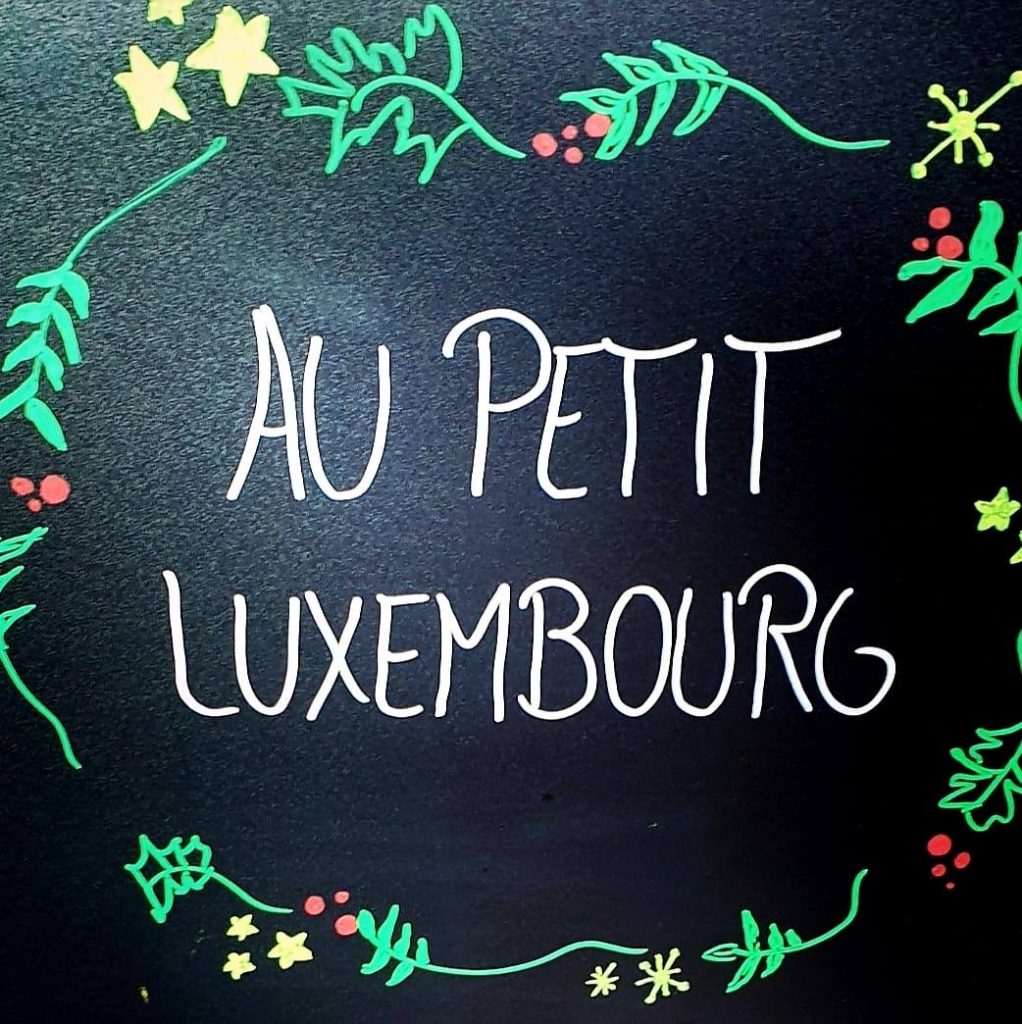 AU PETIT
LUXEMBOURG